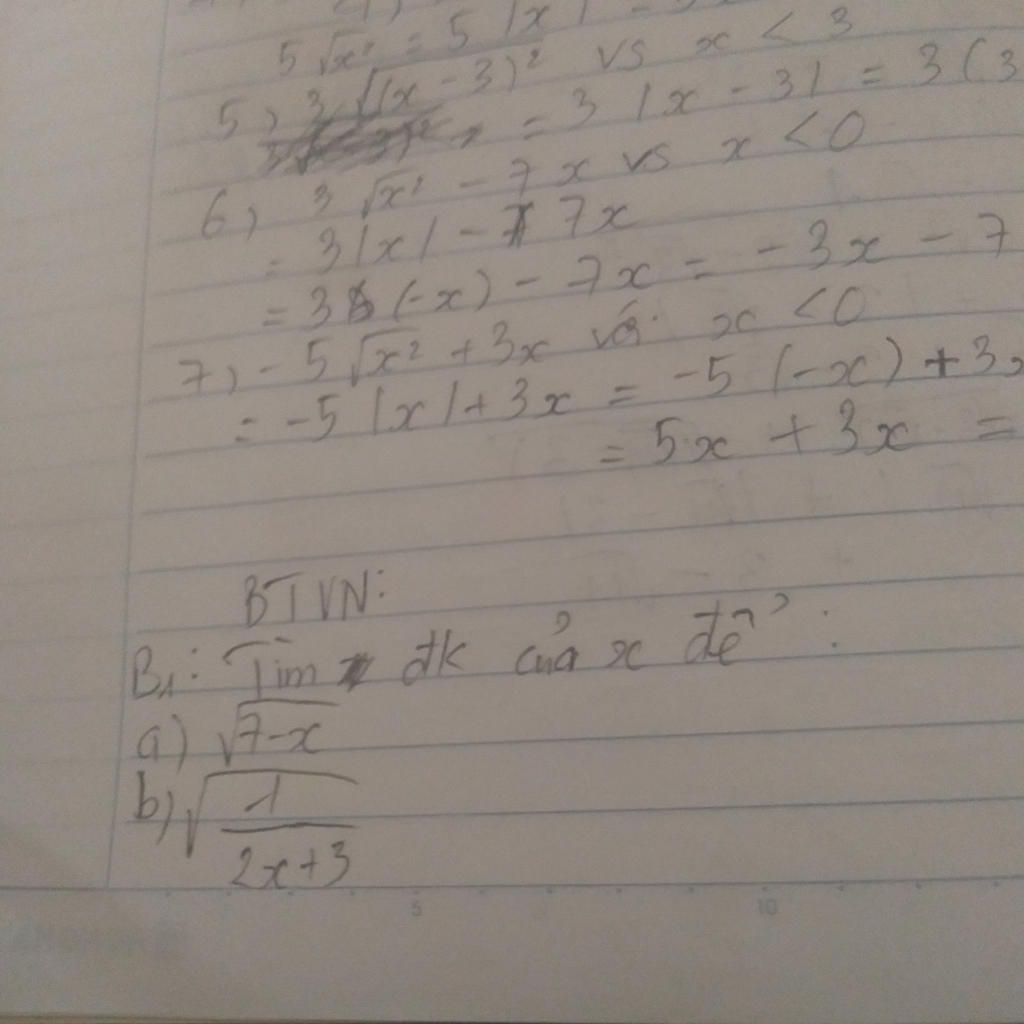 5 √x² = 5 |x| =
5, 3 √(x - 3)² vs x < 3
= 3 |x - 3| = 3 (3
6, 3 √x² - 7x vs x < 0
= 3|x| - 7x
= 3 (-x) - 7x = -3x - 7
7, -5 √x² + 3x với x < 0
= -5 |x| + 3x = -5 (-x) + 3x
= 5x + 3x =
BTVN:
B₁: Tìm đk của x để :
a) √7-x
b) √1/2x+3
5 10